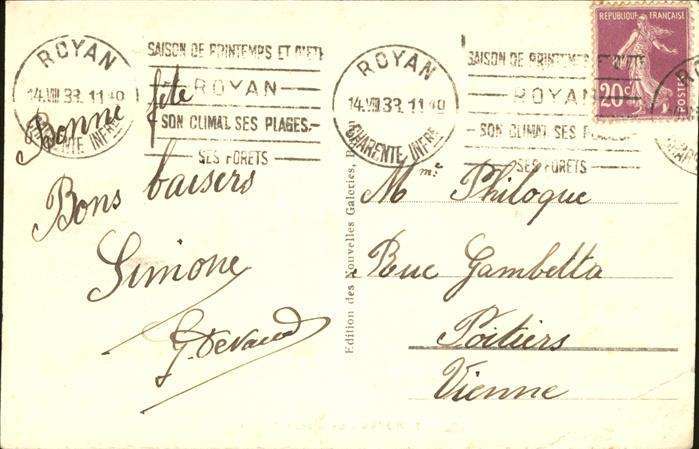 ROYAN
14.VIII 33. 11 40
CHARENTE INFRE
SAISON DE PRINTEMPS ET D'ÉTÉ
ROYAN
SON CLIMAT, SES PLAGES,
SES FORETS
ROYAN
14.VIII 33. 11 40
CHARENTE INFRE
SAISON DE PRINTEMPS ET D'ÉTÉ
ROYAN
SON CLIMAT, SES PLAGES
SES FORETS
REPUBLIQUE FRANÇAISE
20c
POSTES
Bonne fête
Bons baisers
Simone
G. Devaud
Edition des Nouvelles Galeries,
M me Philoque
Rue Gambetta
Poitiers
Vienne